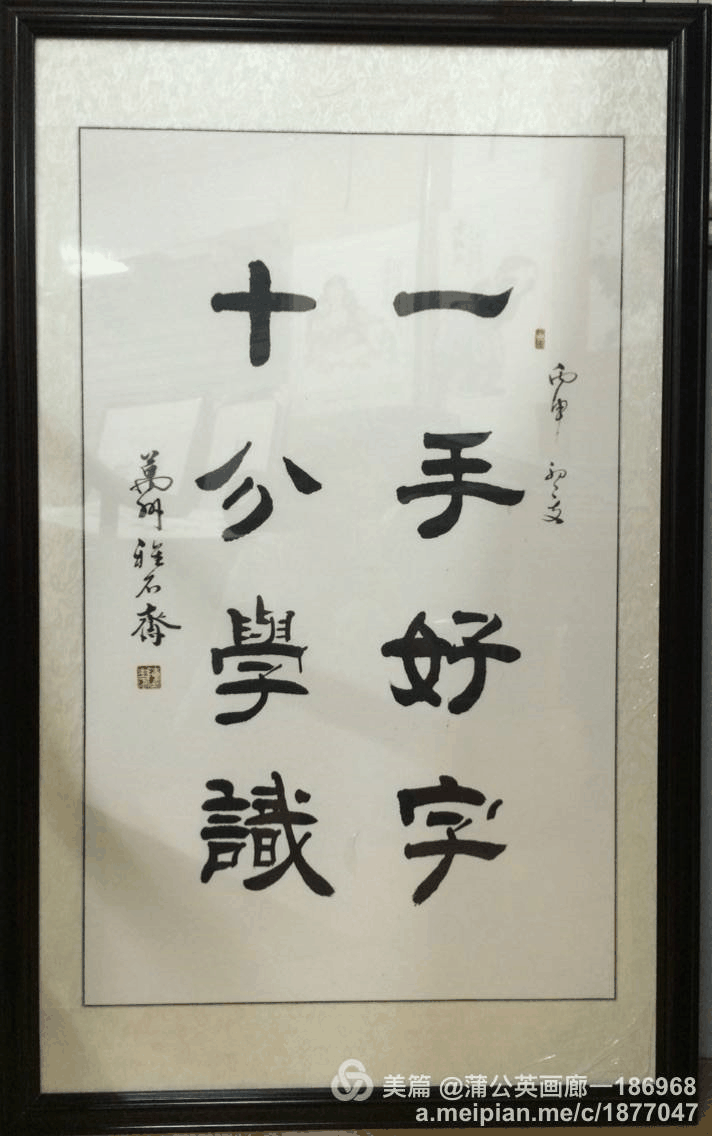 丙申
一手好字
十分學識
萬州雅石齋
美篇 @蒲公英画廊—186968
a.meipian.me/c/1877047